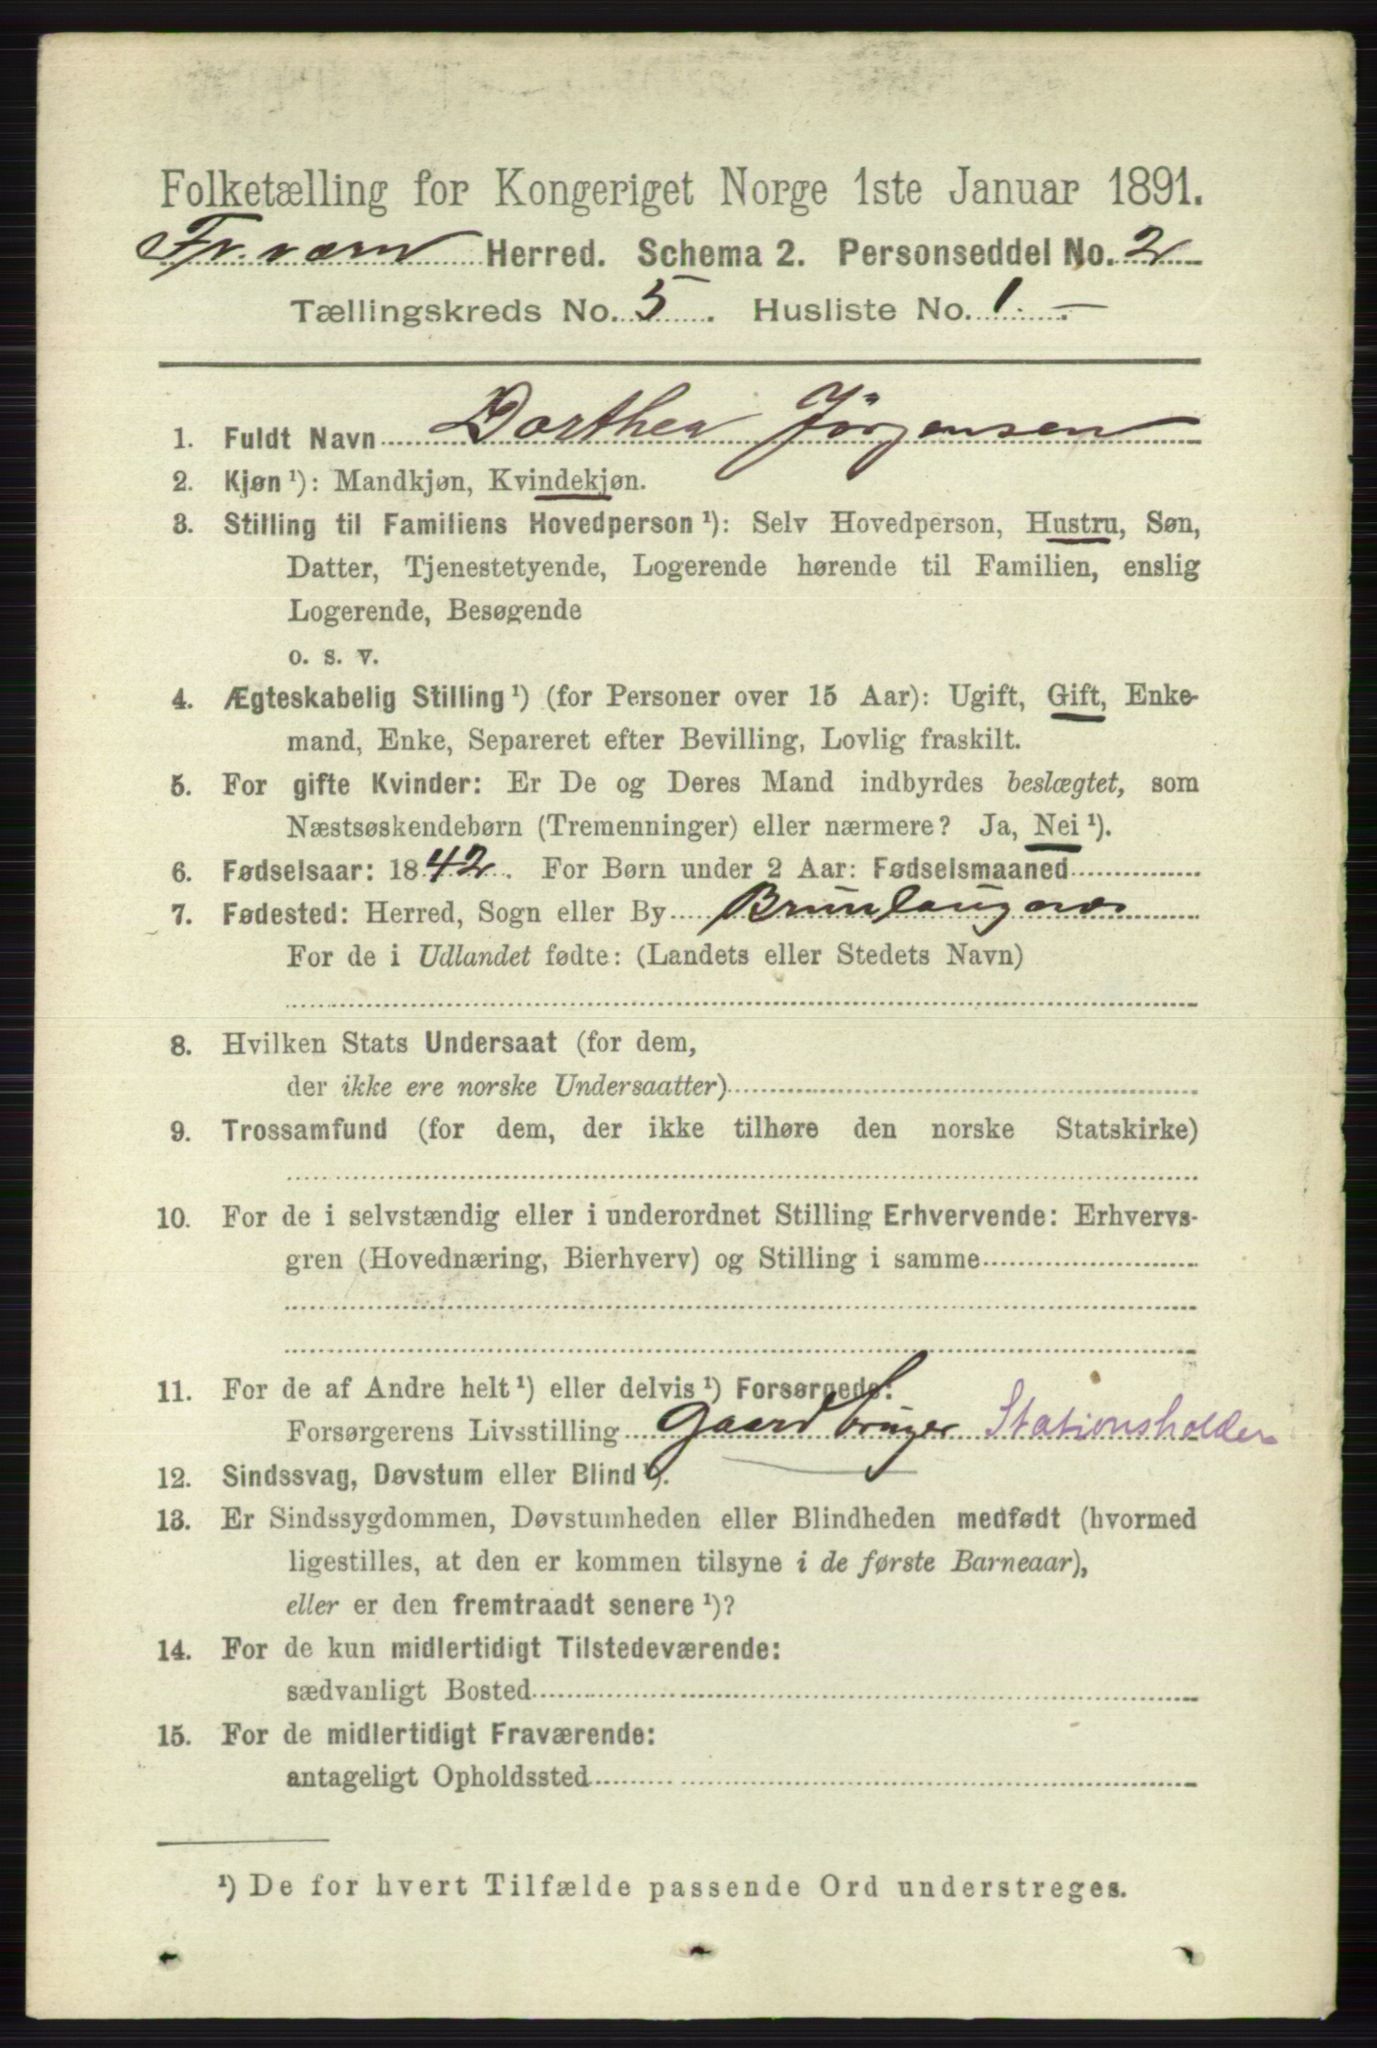 Folketælling for Kongeriget Norge 1ste Januar 1891.
Fr.værn Herred. Schema 2. Personseddel No. 2
Tællingskreds No. 5. Husliste No. 1. -
1. Fuldt Navn Dorthea Jörgensen
2. Kjøn ¹): Mandkjøn, Kvindekjøn.
3. Stilling til Familiens Hovedperson ¹): Selv Hovedperson, Hustru, Søn,
Datter, Tjenestetyende, Logerende hørende til Familien, enslig
Logerende, Besøgende
o. s. v.
4. Ægteskabelig Stilling ¹) (for Personer over 15 Aar): Ugift, Gift, Enke-
mand, Enke, Separeret efter Bevilling, Lovlig fraskilt.
5. For gifte Kvinder: Er De og Deres Mand indbyrdes beslægtet, som
Næstsøskendebørn (Tremenninger) eller nærmere? Ja, Nei ¹).
6. Fødselsaar: 1842. For Børn under 2 Aar: Fødselsmaaned
7. Fødested: Herred, Sogn eller By Brunlaugnæs
For de i Udlandet fødte: (Landets eller Stedets Navn)
8. Hvilken Stats Undersaat (for dem,
der ikke ere norske Undersaatter)
9. Trossamfund (for dem, der ikke tilhøre den norske Statskirke)
10. For de i selvstændig eller i underordnet Stilling Erhvervende: Erhvervs-
gren (Hovednæring, Bierhverv) og Stilling i samme
11. For de af Andre helt ¹) eller delvis ¹) Forsørgede:
Forsørgerens Livsstilling Gaardbruger Stationsholder
12. Sindssvag, Døvstum eller Blind ¹).
13. Er Sindssygdommen, Døvstumheden eller Blindheden medfødt (hvormed
ligestilles, at den er kommen tilsyne i de første Barneaar),
eller er den fremtraadt senere ¹)?
14. For de kun midlertidigt Tilstedeværende:
sædvanligt Bosted
15. For de midlertidigt Fraværende:
antageligt Opholdssted
¹) De for hvert Tilfælde passende Ord understreges.